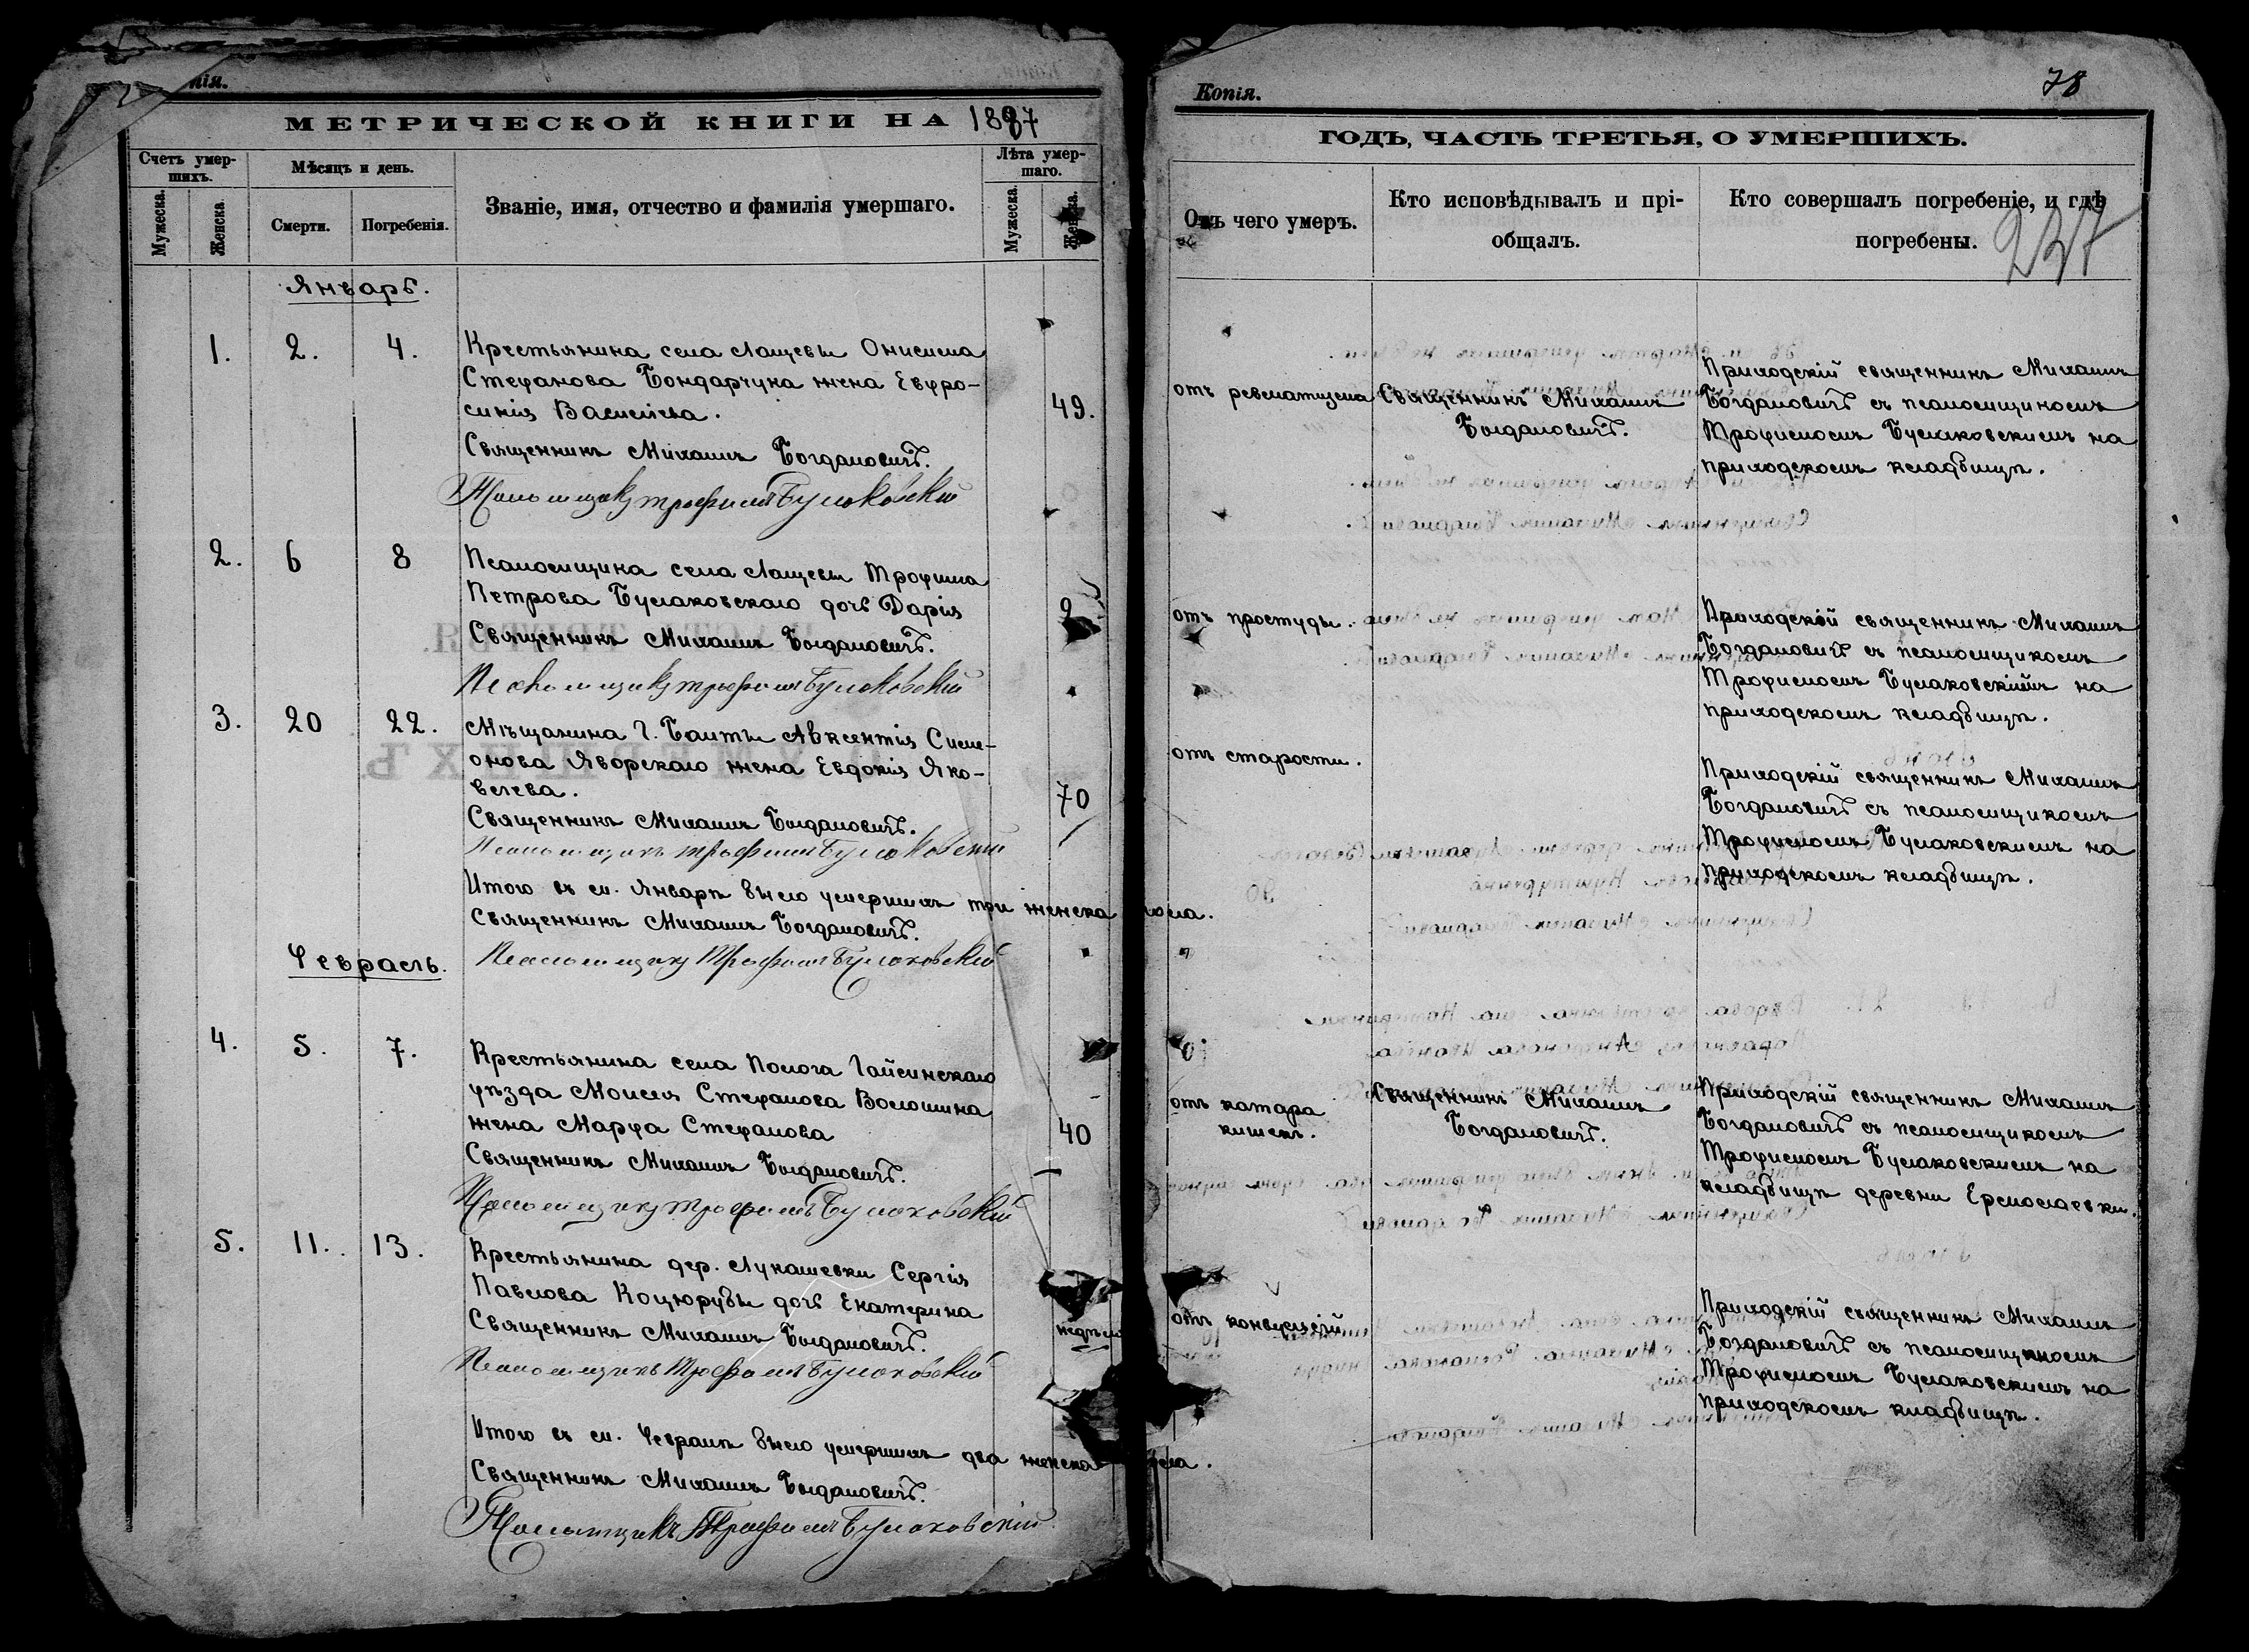 нія.
МЕТРИЧЕСКОЙ КНИГИ НА 1887
Счетъ умер-
шихъ.
Мѣсяцъ и день.
Званіе, имя, отчество и фамилія умершаго.
Лѣта умер-
шаго.
Мужеска.
Женска.
Смерти.
Погребенія.
Мужеска.
Женска.
Январь.
1. 2. 4. Крестьянина села Лащевы Онисима
Стефанова Бондарчука жена Евфро-
синія Васильева. 49.
Священникъ Михаилъ Богдановичъ.
Псаломщикъ Трофимъ Булаковскій
2. 6 8 Псаломщика села Лащевы Трофима
Петрова Булаковскаго дочь Дарія 2
Священникъ Михаилъ Богдановичъ.
Псаломщикъ Трофимъ Булаковскій
3. 20 22. Мѣщанина г. Балты Авксентія Симе-
онова Яворскаго жена Евдокія Яко-
влева. 70
Священникъ Михаилъ Богдановичъ.
Псаломщикъ Трофимъ Булаковскій
Итого въ м. Январѣ было умершихъ три женска пола.
Священникъ Михаилъ Богдановичъ.
Псаломщикъ Трофимъ Булаковскій
Февраль.
4. 5. 7. Крестьянина села Полога Гайсинскаго
уѣзда Моисея Стефанова Волошина
жена Марфа Стефанова 40
Священникъ Михаилъ Богдановичъ.
Псаломщикъ Трофимъ Булаковскій
5. 11. 13. Крестьянина дер. Лукашевки Сергія
Павлова Коцюрубы дочь Екатерина
Священникъ Михаилъ Богдановичъ.
Псаломщикъ Трофимъ Булаковскій
Итого въ м. Февралѣ было умершихъ два женска пола.
Священникъ Михаилъ Богдановичъ.
Псаломщикъ Трофимъ Булаковскій
Копія.
78
ГОДЪ, ЧАСТЬ ТРЕТЬЯ, О УМЕРШИХЪ.
Отъ чего умеръ.
Кто исповѣдывалъ и прі-
общалъ.
Кто совершалъ погребеніе, и гдѣ
погребены.
237
отъ ревматизма
Священникъ Михаилъ
Богдановичъ.
Приходскій священникъ Михаилъ
Богдановичъ съ псаломщикомъ
Трофимомъ Булаковскимъ на
приходскомъ кладбищѣ.
отъ простуды.
Приходскій священникъ Михаилъ
Богдановичъ съ псаломщикомъ
Трофимомъ Булаковскимъ на
приходскомъ кладбищѣ.
отъ старости.
Приходскій священникъ Михаилъ
Богдановичъ съ псаломщикомъ
Трофимомъ Булаковскимъ на
приходскомъ кладбищѣ.
отъ катара
кишекъ.
Священникъ Михаилъ
Богдановичъ.
Приходскій священникъ Михаилъ
Богдановичъ съ псаломщикомъ
Трофимомъ Булаковскимъ на
кладбищѣ деревни Ермолаевки.
отъ конвульсій
Приходскій священникъ Михаилъ
Богдановичъ съ псаломщикомъ
Трофимомъ Булаковскимъ на
приходскомъ кладбищѣ.